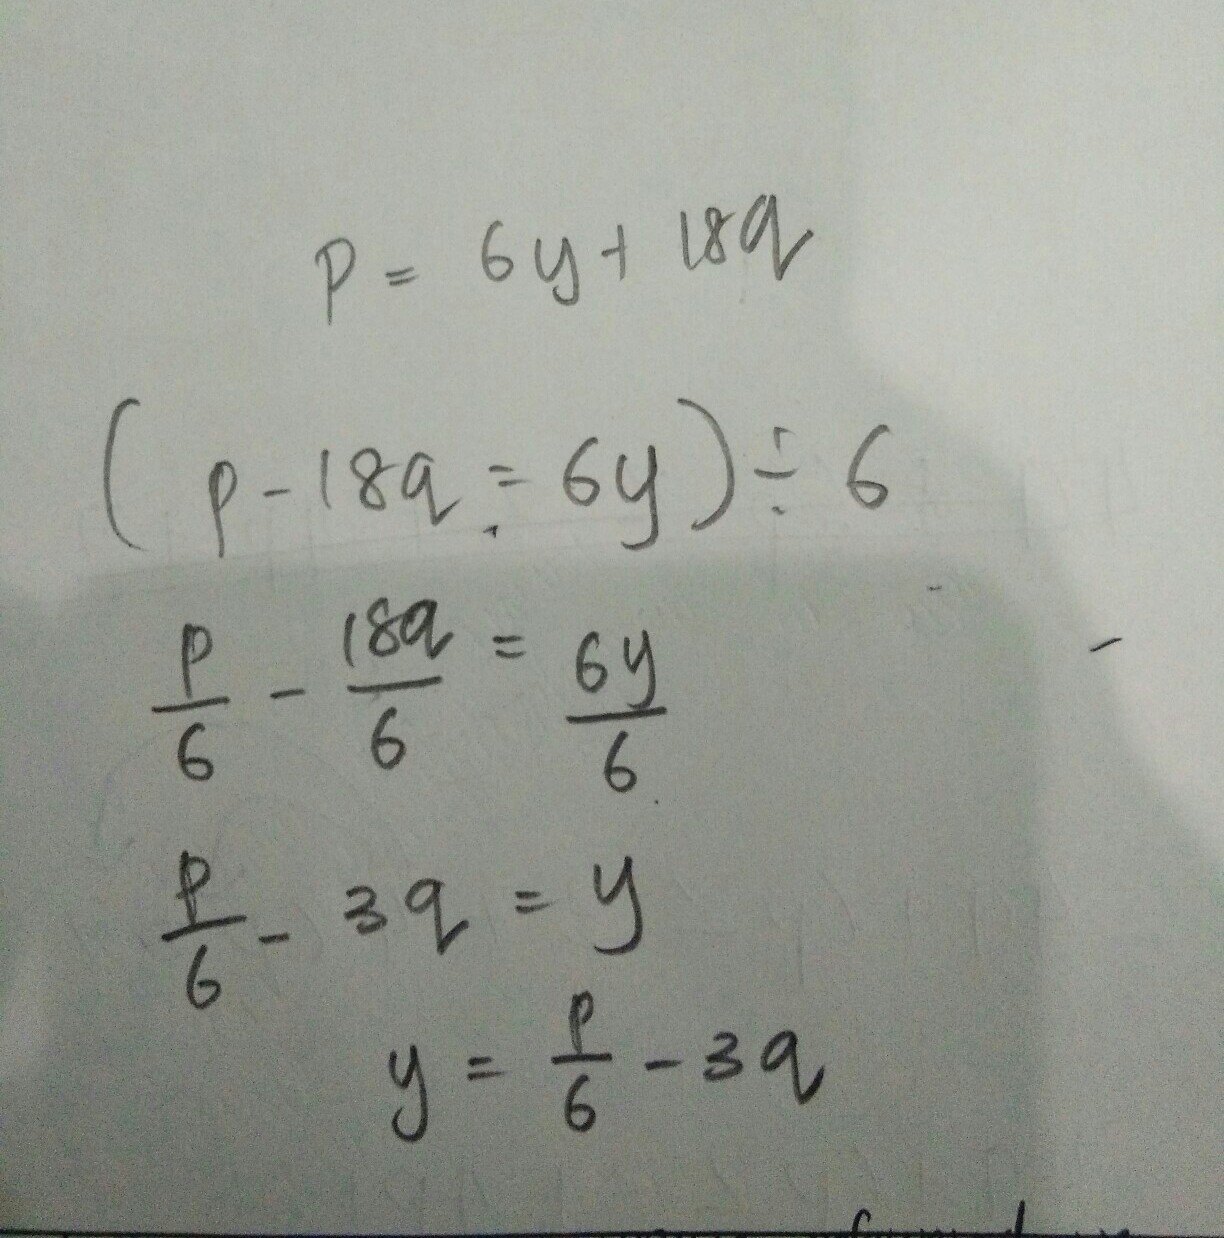 P = 6y + 18q
(p - 18q = 6y) ÷ 6
p/6 - 18q/6 = 6y/6
p/6 - 3q = y
y = p/6 - 3q